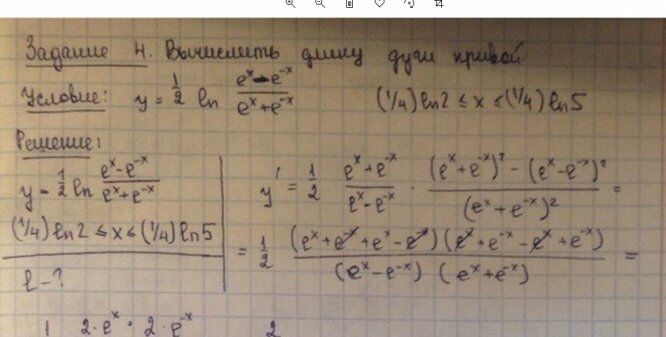 Задание 4. Вычислить длину дуги кривой
Условие: y = 1/2 ln (e^x - e^-x)/(e^x + e^-x) (1/4) ln 2 ≤ x ≤ (1/4) ln 5
Решение:
y = 1/2 ln (e^x - e^-x)/(e^x + e^-x)
(1/4) ln 2 ≤ x ≤ (1/4) ln 5
l - ?
y' = 1/2 (e^x + e^-x)/(e^x - e^-x) · ((e^x + e^-x)^2 - (e^x - e^-x)^2)/(e^x + e^-x)^2 =
= 1/2 ((e^x + e^-x + e^x - e^-x)(e^x + e^-x - e^x + e^-x))/((e^x - e^-x)(e^x + e^-x)) =
1 2·e^x · 2·e^-x 2